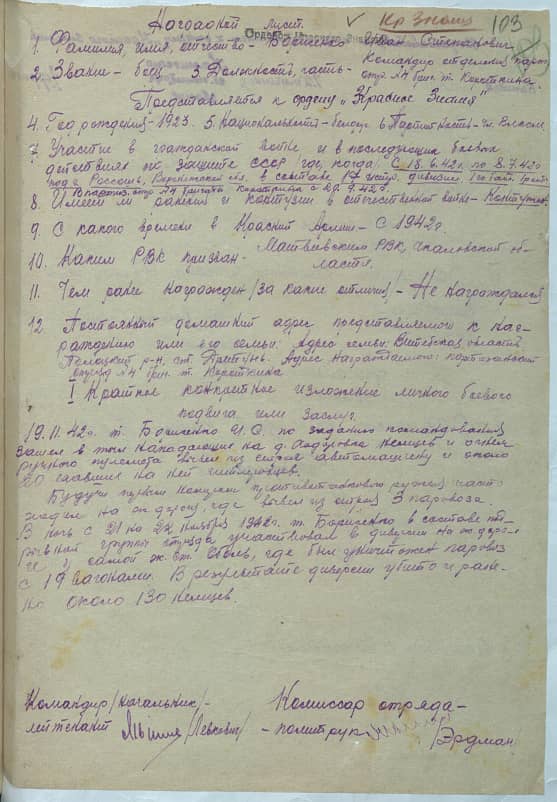 Наградной лист.
Кр Знамя
103
1. Фамилия, имя, отчество – Борисенко Иван Степанович
2. Звание – боец 3. Должность, часть – Командир отделения парт.
отр. №4 бриг. т. Короткина.
Представляется к ордену „Красное Знамя"
4. Год рождения – 1923. 5. Национальность – белорус 6. Партийность – чл. ВЛКСМ.
7. Участие в гражданской войне и в последующих боевых
действиях по защите СССР где, когда: С 18.6.42г. по 8.7.42г
под г. Россошь, Воронежской обл. в составе 17 истр. дивизии
В партиз. отр. №4 бригады Короткина с 29.9.42г.
8. Имеет ли ранения и контузии в отечественной войне – Контужен
9. С какого времени в Красной Армии – С 1942г.
10. Каким РВК призван – Матвеевским РВК, Чкаловской об-
ласти.
11. Чем ранее награжден /за какие отличия/ – Не награждался
12. Постоянный домашний адрес представляемого к наг-
раждению или его семьи. Адрес семьи: Витебская область
Полоцкий р-н, ст. Адрес награждаемого: партизанский
отряд №4 бриг. т. Короткина
I Краткое конкретное изложение личного боевого
подвига или заслуг.
19.11.42г. т. Борисенко И.С. по заданию командования
зашел в тыл нападающих на д. немцев и огнем
ручного пулемета вывел из строя автомашину и около
20 ехавших на ней гитлеровцев.
Будучи первым номером противотанкового ружья часто
ходил на ж. дорогу, где вывел из строя 3 паровоза
В ночь с 21 на 22 ноября 1942г. т. Борисенко в составе под-
рывной группы отряда участвовал в диверсии на ж. доро-
ге у самой ж. ст. Оболь, где был уничтожен паровоз
с 19 вагонами. В результате диверсии убито и ране-
но около 130 немцев.
Командир /начальник/ – Комиссар отряда –
лейтенант /Левкович/ – политрук /Эрдман/